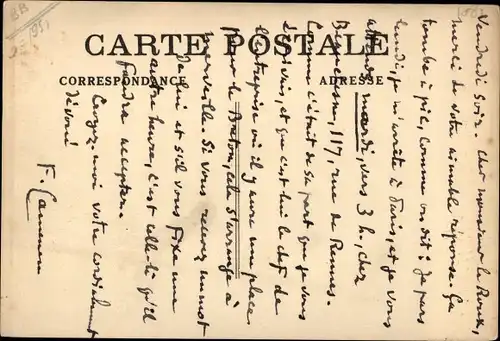 BB
1951
CARTE POSTALE
CORRESPONDANCE
ADRESSE
Vendredi Soir. Cher monsieur Le Roux,
merci de votre aimable réponse. Ça
tombe à pic, comme on dit : Je pars
lundi, je m'arrête à Paris, et je vous
mardi, vers 3 h., chez
117, rue de Rennes.
Comme c'était de sa part que je vous
et que c'est lui le chef de
l'entreprise où il y aura une place
pour le Breton, cela s'arrange à
merveille. Si vous recevez un mot
de lui et s'il vous fixe une
autre heure, c'est celle-là qu'il
faudra accepter.
Croyez-moi votre cordialement
dévoué
F.